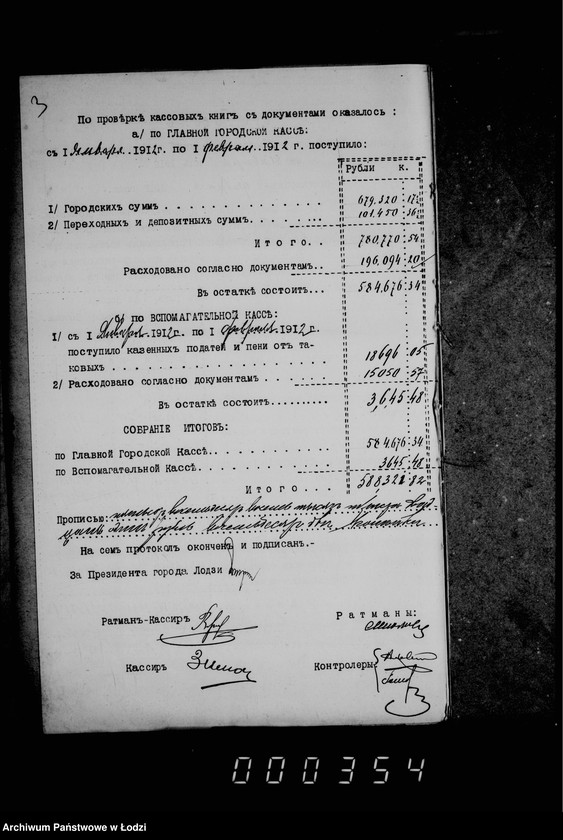 3
По провѣркѣ кассовыхъ книгъ съ документами оказалось :
а/ по ГЛАВНОЙ ГОРОДСКОЙ КАССѢ:
съ I Января..1912г. по I февраля..1912 г. поступило:
Рубли к.
1/ Городскихъ суммъ . . . . . . . . . . . . . . 679.320 17
2/ Переходныхъ и депозитныхъ суммъ. . . . . ... 101.450
Итого. . 780,770 54
Расходовано согласно документамъ.. 196,094 20
Въ остаткѣ состоитъ... 584.676 34
б/ по ВСПОМАГАТЕЛЬНОЙ КАССѢ:
1/ съ I Января..1912г. по I февраля 1912г.
поступило казенныхъ податей и пени отъ та-
ковыхъ . . . . . . . . . . . . . . . . . 18696 05
2/ Расходовано согласно документамъ . . . . ... 15050 57
Въ остаткѣ состоитъ.......... 3,645 48
СОБРАНІЕ ИТОГОВЪ:
по Главной Городской Кассѣ. . . . . . . . . . 584.676 34
по Вспомагательной Кассѣ. . . . . . . . ..... 3645 48
Итого . . . 588321 82
Прописью: пятьсотъ восемьдесятъ восемь тысячъ триста двад-
цать одинъ рубль восемьдесятъ двѣ копѣйки
На семъ протоколъ оконченъ и подписан.-
За Президента города Лодзи
Ратманъ-Кассиръ
Ратманы:
Кассиръ
Контролеры
000354
Archiwum Państwowe w Łodzi